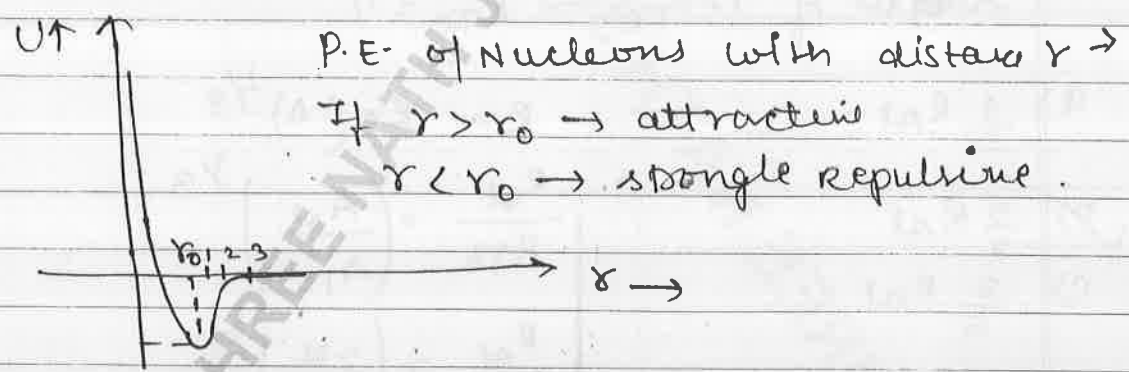 U↑
P.E. of Nucleons with distance r →
If r > r₀ → attractive
r < r₀ → strongle Repulsive.
r₀ 1 2 3
r →
HREE NATH J